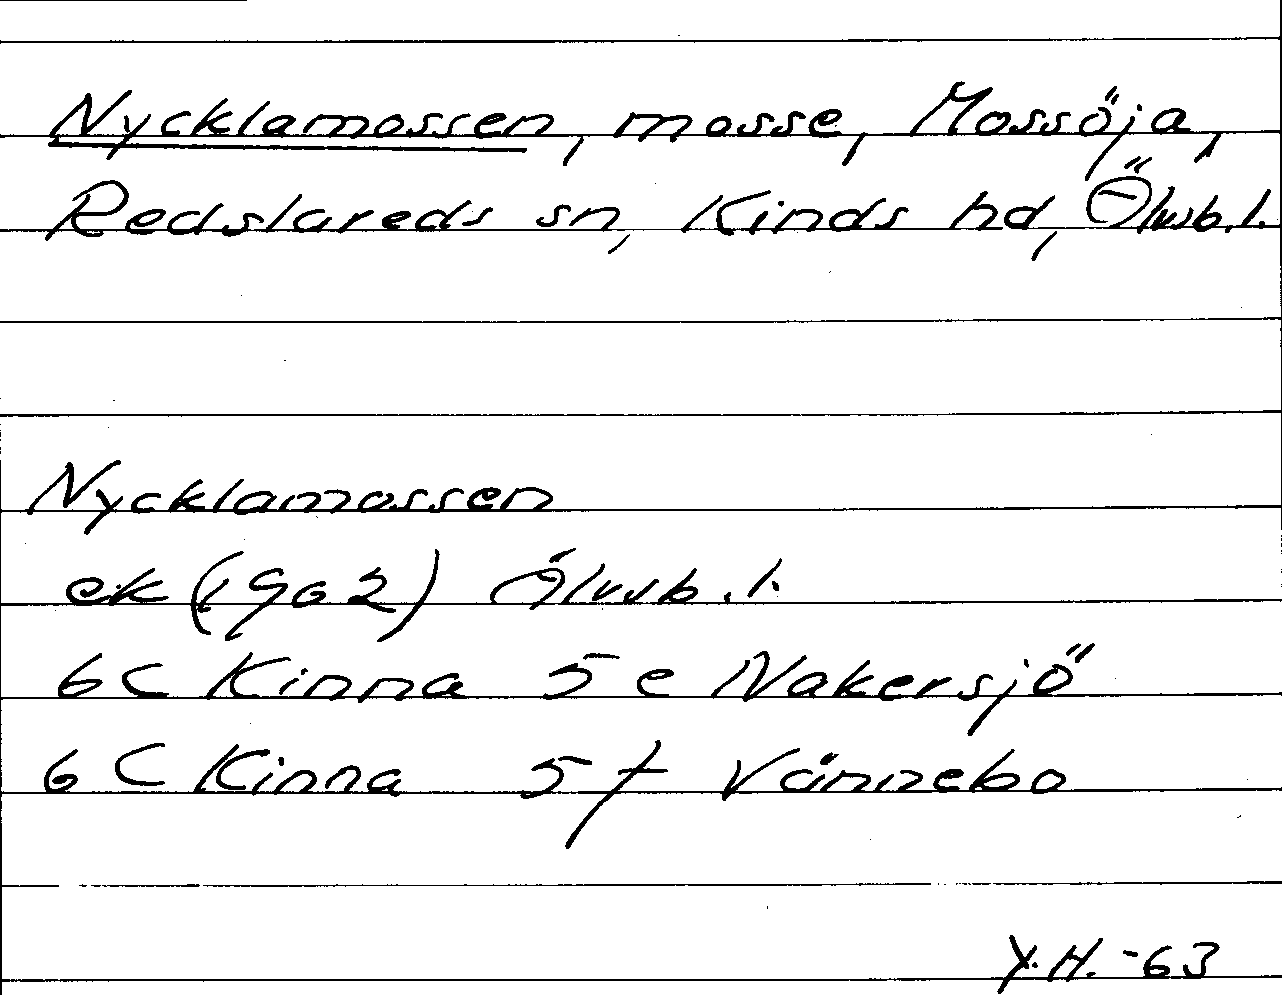 Nycklamossen, mosse, Mossöja,
Redslareds sn, Kinds hd, Älvsb.l.
Nycklamossen
ek (1902) Älvsb.l.
6C Kinna 5e Nakersjö
6C Kinna 5f Vännebo
Y.H.-63